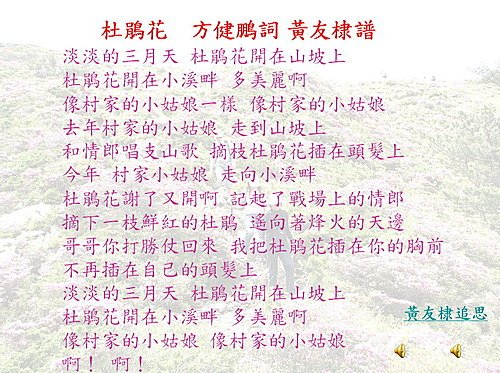 杜鵑花 方健鵬詞 黃友棣譜
淡淡的三月天 杜鵑花開在山坡上
杜鵑花開在小溪畔 多美麗啊
像村家的小姑娘一樣 像村家的小姑娘
去年村家的小姑娘 走到山坡上
和情郎唱支山歌 摘枝杜鵑花插在頭髮上
今年 村家小姑娘 走向小溪畔
杜鵑花謝了又開啊 記起了戰場上的情郎
摘下一枝鮮紅的杜鵑 遙向著烽火的天邊
哥哥你打勝仗回來 我把杜鵑花插在你的胸前
不再插在自己的頭髮上
淡淡的三月天 杜鵑花開在山坡上
杜鵑花開在小溪畔 多美麗啊
像村家的小姑娘 像村家的小姑娘
啊！ 啊！
黃友棣追思